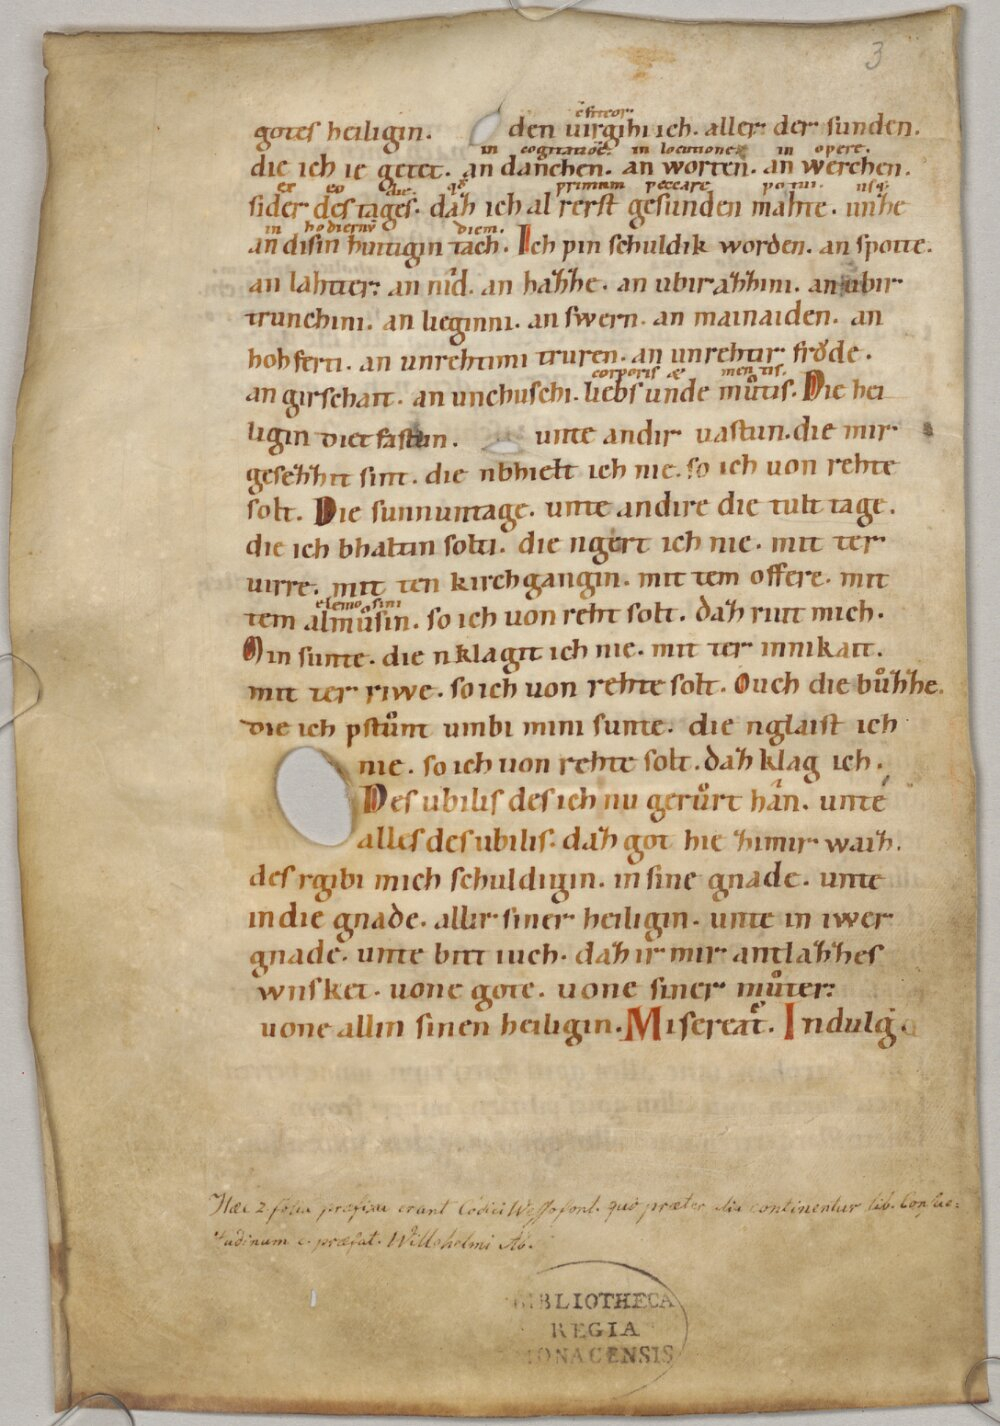 3
gotes heiligin. den uirgihi ich. aller der sunden.
in cogitatiōe. in locutione. in opere.
die ich ie getet. an danchen. an worten. an werchen.
ex eo die. primum peccare potui. usq;
sider des tages. dah ich al rerst gesunden mahte. unhe
in hodiernū diem.
an disin hiutigin tach. Ich pin schuldik worden. an spotte.
an lahter. an nîd. an hahhe. an ubirahhini. an ubir
trunchini. an lieginni. an swern. an mainaiden. an
hohferti. an unrehtimi truren. an unrehtir frŏde.
corporis & mentis.
an girschait. an unchuschi. liebs unde můtis. Die hei
ligin dietfastun. unte andir uastun. die mir
gesehhit sint. die nbhielt ich nie. so ich uon rehte
solt. Die sunnuntage. unte andire die tult tage.
die ich bhaltin solti. die ngert ich nie. mit ter
uirre. mit ten kirchgangin. mit tem offere. mit
elemosini
tem almůsin. so ich uon reht solt. dah riut mich.
Min sunte. die nklagit ich nie. mit ter innikait.
mit ter riwe. so ich uon rehte solt. Ouch die bůhhe.
die ich pstůnt umbi mini sunte. die nglaist ich
nie. so ich uon rehte solt. dah klag ich.
Des ubilis des ich nu gerůrt hân. unte
alles des ubilis. dah got hie himir waih.
des rgibi mich schuldigin. in sine gnade. unte
in die gnade. allir siner heiligin. unte in iwer
gnade. unte bitt iuch. dah ir mir antlahhes
wnsket. uone gote. uone siner můter.
uone allin sinen heiligin. Misereat͛. Indulg.
Haec 2. folia praefixa erant Codici Wessofont. quo praeter alia continentur lib. Consue=
tudinum c. praefat. Willehelmi Ab.
BIBLIOTHECA
REGIA
MONACENSIS